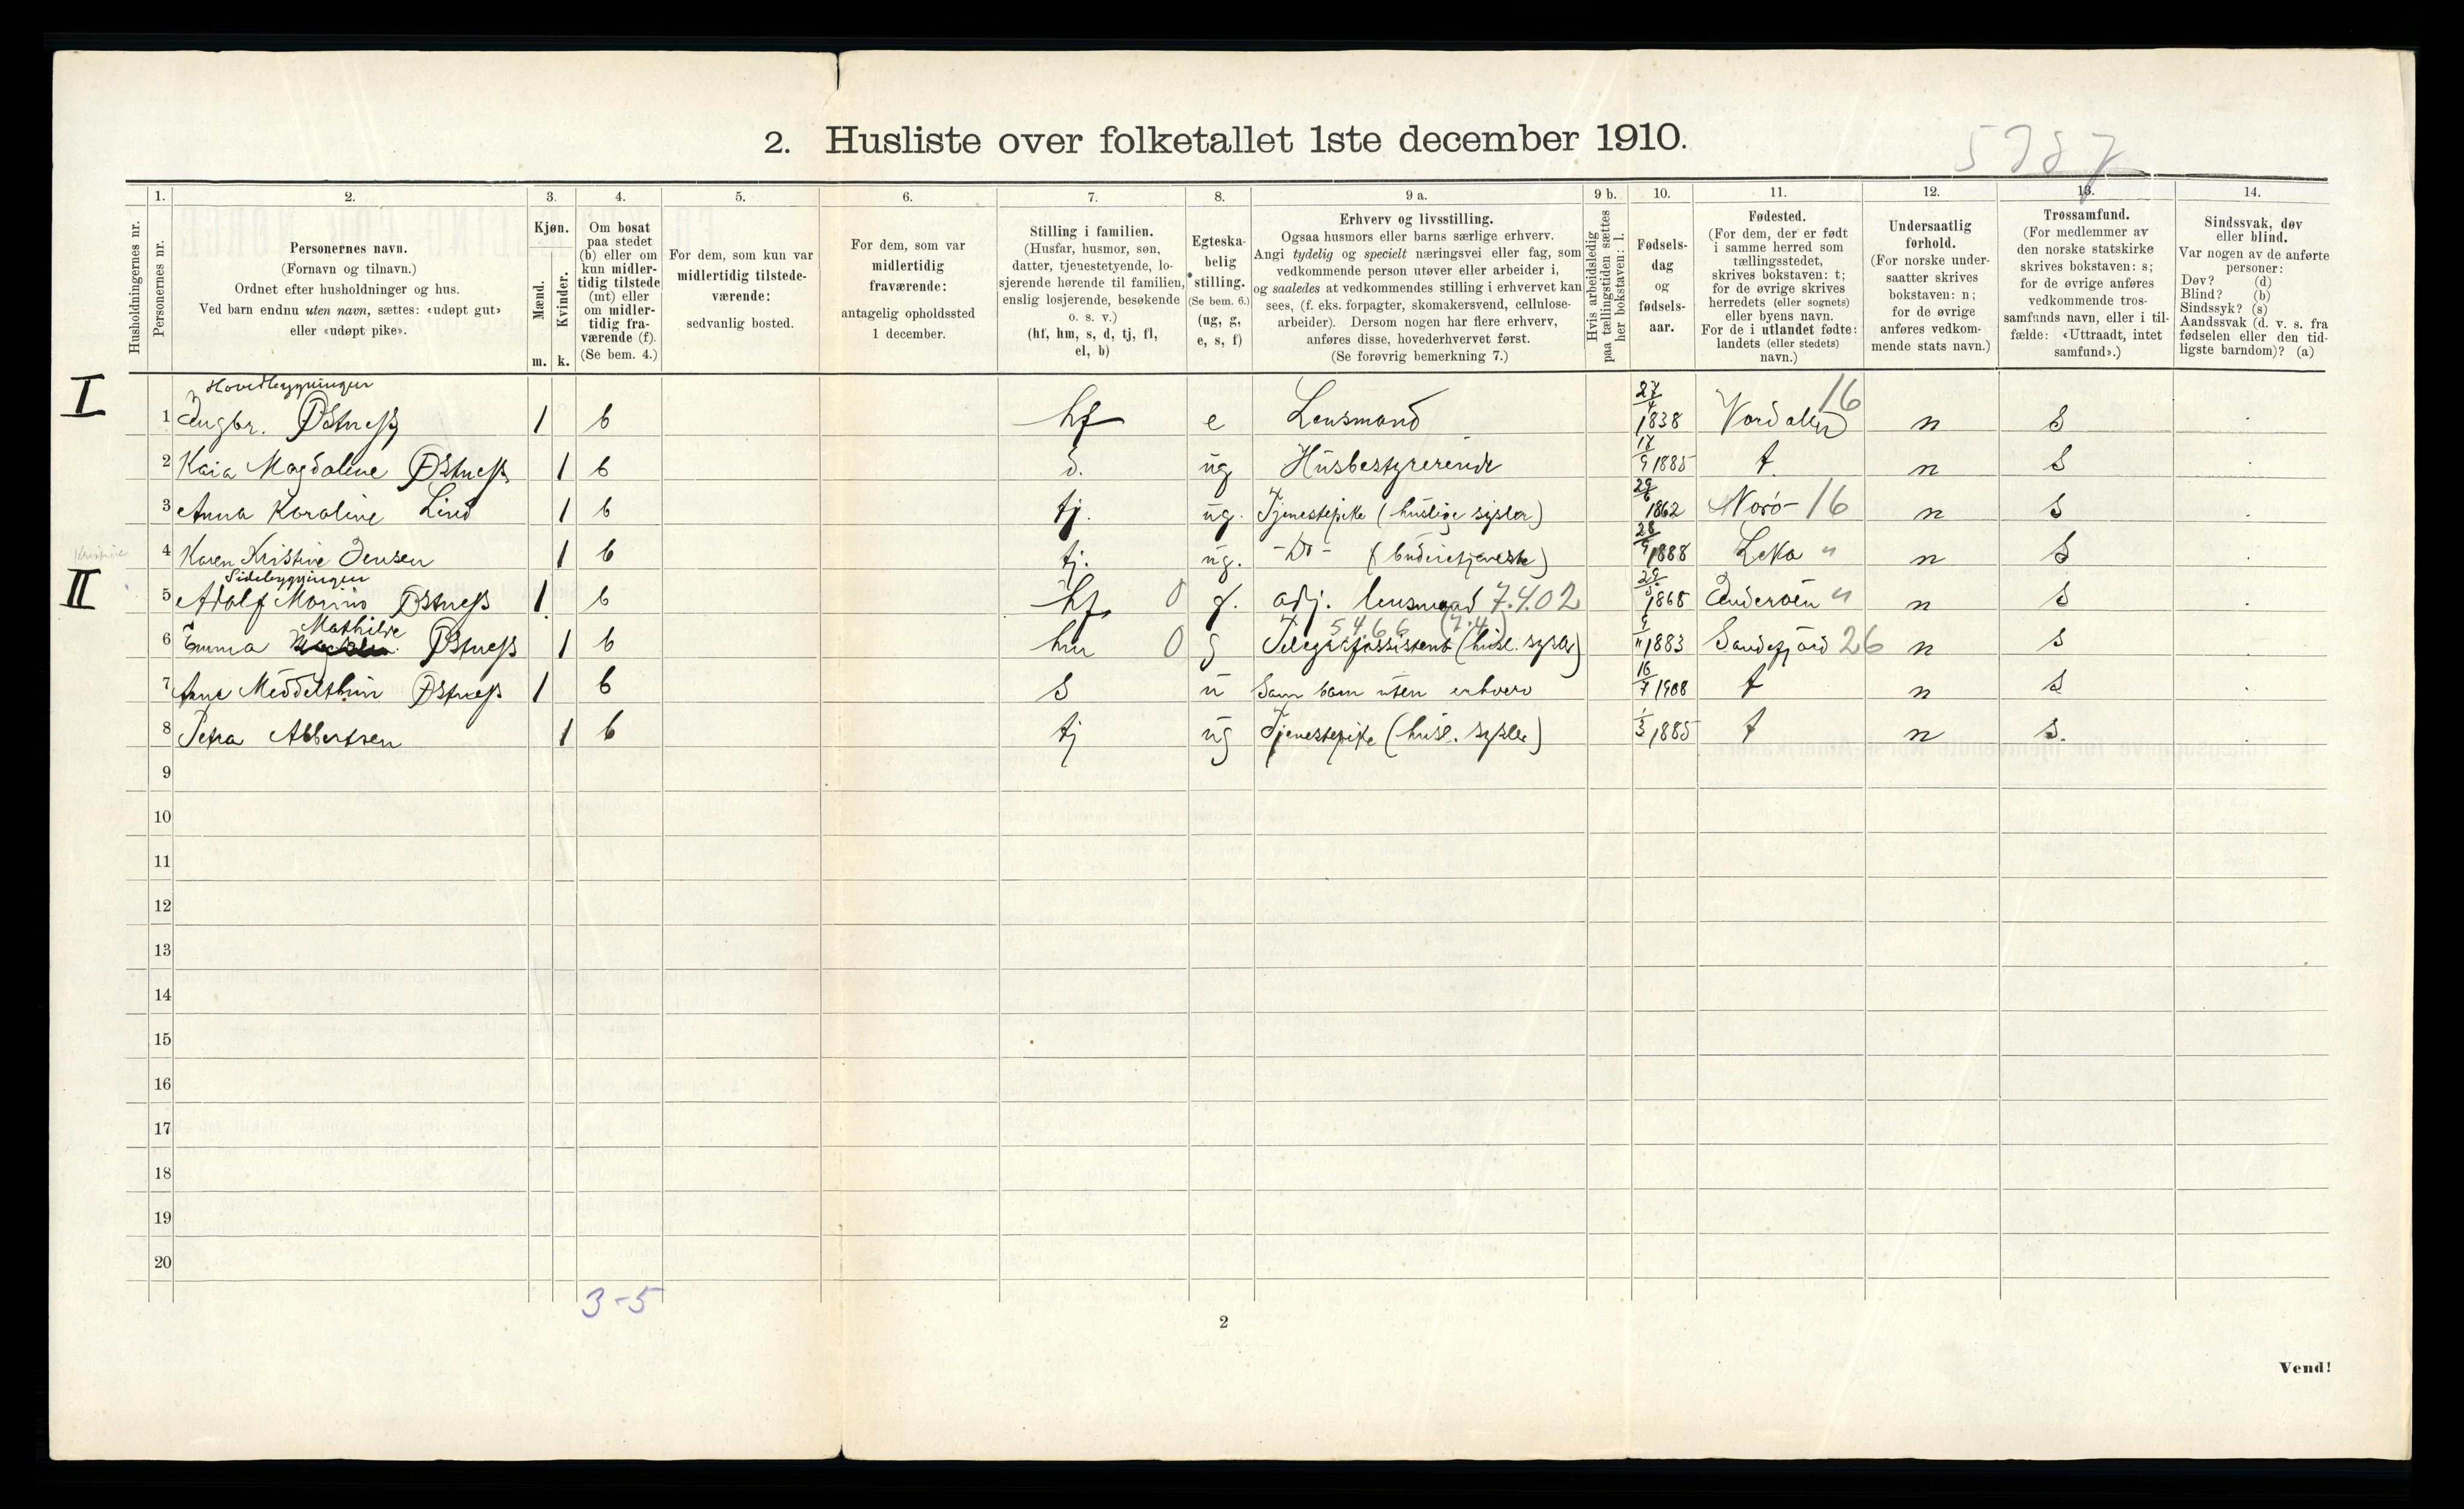 2. Husliste over folketallet 1ste december 1910.
Husholdningernes nr.
1. Personernes nr.
2. Personernes navn.
(Fornavn og tilnavn.)
Ordnet efter husholdninger og hus.
Ved barn endnu uten navn, sættes: «udøpt gut»
eller «udøpt pike».
3. Kjøn.
Mænd. m.
Kvinder. k.
4. Om bosat
paa stedet
(b) eller om
kun midler-
tidig tilstede
(mt) eller
om midler-
tidig fra-
værende (f).
(Se bem. 4.)
5. For dem, som kun var
midlertidig tilstede-
værende:
sedvanlig bosted.
6. For dem, som var
midlertidig
fraværende:
antagelig opholdssted
1 december.
7. Stilling i familien.
(Husfar, husmor, søn,
datter, tjenestetyende, lo-
sjerende hørende til familien,
enslig losjerende, besøkende
o. s. v.)
(hf, hm, s, d, tj, fl,
el, b)
8. Egteska-
belig
stilling.
(Se bem. 6.)
(ug, g,
e, s, f)
9 a. Erhverv og livsstilling.
Ogsaa husmors eller barns særlige erhverv.
Angi tydelig og specielt næringsvei eller fag, som
vedkommende person utøver eller arbeider i,
og saaledes at vedkommendes stilling i erhvervet kan
sees, (f. eks. forpagter, skomakersvend, cellulose-
arbeider). Dersom nogen har flere erhverv,
anføres disse, hovederhvervet først.
(Se forøvrig bemerkning 7.)
9 b. Hvis arbeidsledig
paa tællingstiden sættes
her bokstaven: l.
10. Fødsels-
dag
og
fødsels-
aar.
11. Fødested.
(For dem, der er født
i samme herred som
tællingsstedet,
skrives bokstaven: t;
for de øvrige skrives
herredets (eller sognets)
eller byens navn.
For de i utlandet fødte:
landets (eller stedets)
navn.)
12. Undersaatlig
forhold.
(For norske under-
saatter skrives
bokstaven: n;
for de øvrige
anføres vedkom-
mende stats navn.)
13. Trossamfund.
(For medlemmer av
den norske statskirke
skrives bokstaven: s;
for de øvrige anføres
vedkommende tros-
samfunds navn, eller i til-
fælde: «Uttraadt, intet
samfund».)
14. Sindssvak, døv
eller blind.
Var nogen av de anførte
personer:
Døv? (d)
Blind? (b)
Sindssyk? (s)
Aandssvak (d. v. s. fra
fødselen eller den tid-
ligste barndom)? (a)
Hovedbygningen
I 1 Ingbr. Østness 1 b hf e Lensmand 27/4 1838 Værdalen 16 n s
2 Kaia Magdaline Østness 1 b d. ug Husbestyrerinde 17/9 1885 t n s
3 Anna Karoline Lind 1 b tj. ug. Tjenestepike (huslige sysler) 1862 Nærø 16 n s
Kristine
4 Karen Kristine Jensen 1 b tj. ug. -Do- 28/9 1888 Leka " n s
Sidebygningen
II 5 Adolf Marino Østness 1 b hf 0 g. adj. lensmand 7.4.02 1865 Inderøen " n s
5466 (7.4)
Mathilde
6 Emma Østness 1 b hm 0 g Telegrafassistent (husl. sysler) 1883 Sandefjord 26 n s
7 Arne Meddelthun Østness 1 b s u Som barn uten erhverv 16/7 1908 t n s
8 Petra Albertsen 1 b tj ug Tjenestepike (husl. sysler) 1/3 1885 t n s.
9
10
11
12
13
14
15
16
17
18
19
20
3-5
2
Vend!